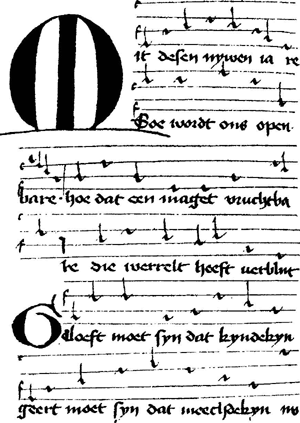 Uit desen nywen ia re
Soe wordt ons open
bare hoe dat een maget vruchtba
re die werrelt heeft verblijt
Gloeft moet syn dat kyndekyn
geert moet syn dat meechdekyn